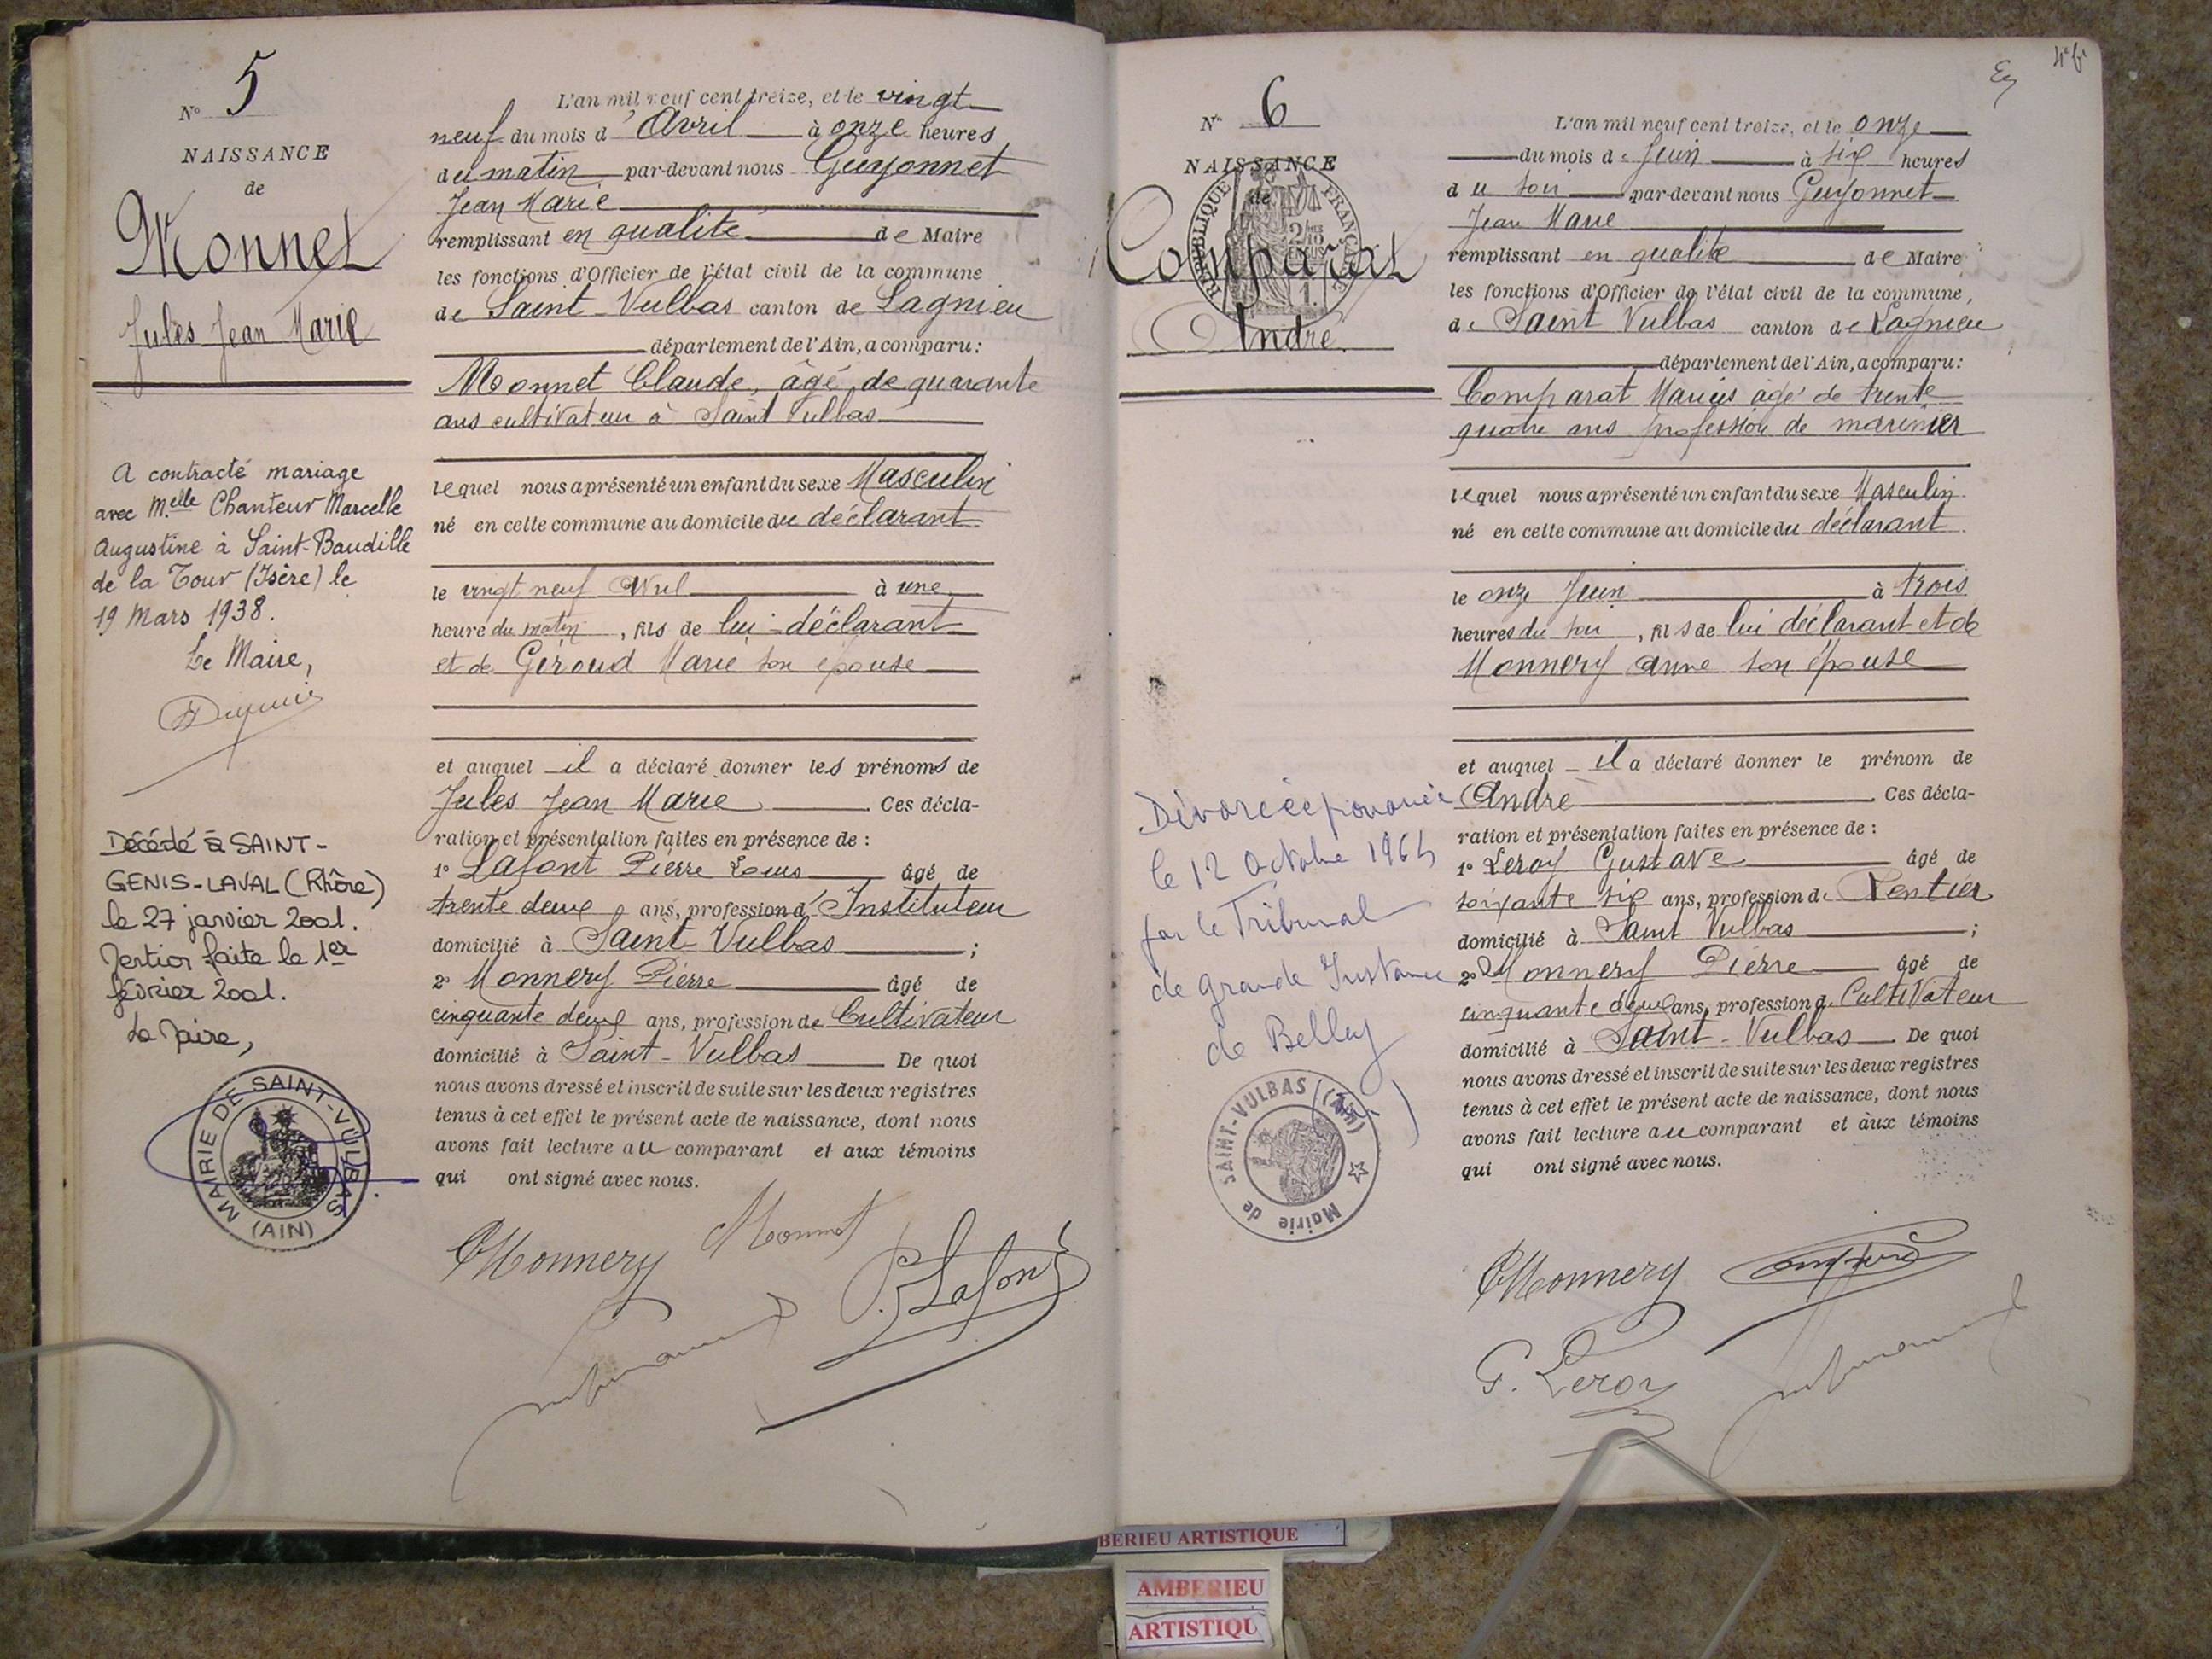 N° 5
NAISSANCE
de
Monnet
Jules Jean Marie
A contracté mariage
avec M.elle Chanteur Marcelle
Augustine à Saint-Baudille
de la Tour (Isère) le
19 Mars 1938.
Le Maire,
Décédé à SAINT-
GENIS-LAVAL (Rhône)
le 27 janvier 2001.
Mention faite le 1er
février 2001.
Le Maire,
MAIRIE DE SAINT-VULBAS
(AIN)
L'an mil neuf cent treize, et le vingt
neuf du mois d'Avril à onze heures
du matin par-devant nous Guyonnet
Jean Marie
remplissant en qualité de Maire
les fonctions d'Officier de l'état civil de la commune
de Saint-Vulbas canton de Lagnieu
département de l'Ain, a comparu:
Monnet Claude, âgé de quarante
ans cultivateur à Saint Vulbas
lequel nous a présenté un enfant du sexe Masculin
né en cette commune au domicile du déclarant
le vingt neuf Avril à une
heure du matin, fils de lui déclarant
et de Géroud Marie son épouse
et auquel il a déclaré donner les prénoms de
Jules Jean Marie Ces décla-
ration et présentation faites en présence de :
1° Lafont Pierre Louis âgé de
trente deux ans, profession d'Instituteur
domicilié à Saint Vulbas ;
2° Monnery Pierre âgé de
cinquante deux ans, profession de Cultivateur
domicilié à Saint-Vulbas De quoi
nous avons dressé et inscrit de suite sur les deux registres
tenus à cet effet le présent acte de naissance, dont nous
avons fait lecture au comparant et aux témoins
qui ont signé avec nous.
Monnery Monnet
P. Lafont
4e f.
N° 6
NAISSANCE
de
Comparat
André
RÉPUBLIQUE FRANÇAISE
L'an mil neuf cent treize, et le onze
du mois de Juin à six heures
du soir par-devant nous Guyonnet
Jean Marie
remplissant en qualité de Maire
les fonctions d'Officier de l'état civil de la commune,
de Saint Vulbas canton de Lagnieu
département de l'Ain, a comparu:
Comparat Marius âgé de trente
quatre ans profession de marinier
lequel nous a présenté un enfant du sexe Masculin
né en cette commune au domicile du déclarant
le onze Juin à trois
heures du soir, fils de lui déclarant et de
Monnery Anne son épouse
et auquel il a déclaré donner le prénom de
André Ces décla-
ration et présentation faites en présence de :
1° Leroy Gustave âgé de
soixante six ans, profession de Rentier
domicilié à Saint Vulbas ;
2° Monnery Pierre âgé de
cinquante deux ans, profession de Cultivateur
domicilié à Saint-Vulbas De quoi
nous avons dressé et inscrit de suite sur les deux registres
tenus à cet effet le présent acte de naissance, dont nous
avons fait lecture au comparant et aux témoins
qui ont signé avec nous.
Divorcé prononcée
le 12 Octobre 1964
par le Tribunal
de grande Instance
de Belley
Mairie de SAINT-VULBAS (Ain)
Monnery Comparat
G. Leroy
BERIEU ARTISTIQUE
AMBERIEU
ARTISTIQU